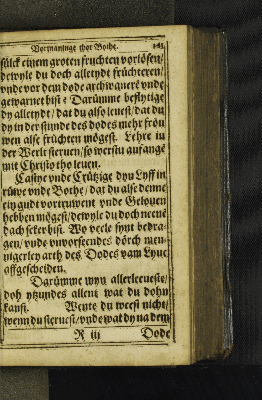 Vormaninge thor Bothe.
sülck einem groten fruchten vorlösen/
dewyle du doch alletydt früchteren/
vnde vor dem dode
gewarnet bist? Darümme beflytige
dy alletydt/ dat du also leuest/ dat du
dy in der stunde des dodes mehr fröu
wen alse früchten mögest. Lehre in
der Werlt steruen/ so werstu anfange
mit Christo tho leuen.
Castye vnde Crützige dyn Lyff in
rüwe vnde Bothe/ dat du alse denne
ein gudt vortruwent vnde Gelouen
hebben mögest/ dewyle du doch nenen
dach seker bist. Wo veele synt bedra-
gen/ vnde vnvorseendes dörch men-
nigerley arth des Dodes vam Lyue
affgescheiden.
Darümme myn allerleueste/
doh ytzundes allent wat du dohn
kanst. Wente du weest nicht/
wenn du sternest/ vnde wat dy na dem
R iij Dode